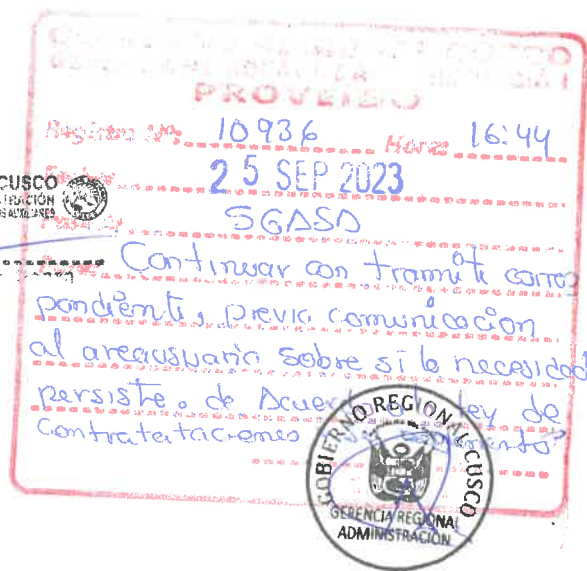 PROVEIDO
Registro Nº 10936 Hora: 16:44
25 SEP 2023
CUSCO
SGASA
Continuar con tramite corres
pondiente, previa comunicación
al areausuario sobre si la necesidad
persiste. de Acuerdo ley de
Contratataciones
GOBIERNO REGIONAL CUSCO
GERENCIA REGIONAL
ADMINISTRACIÓN